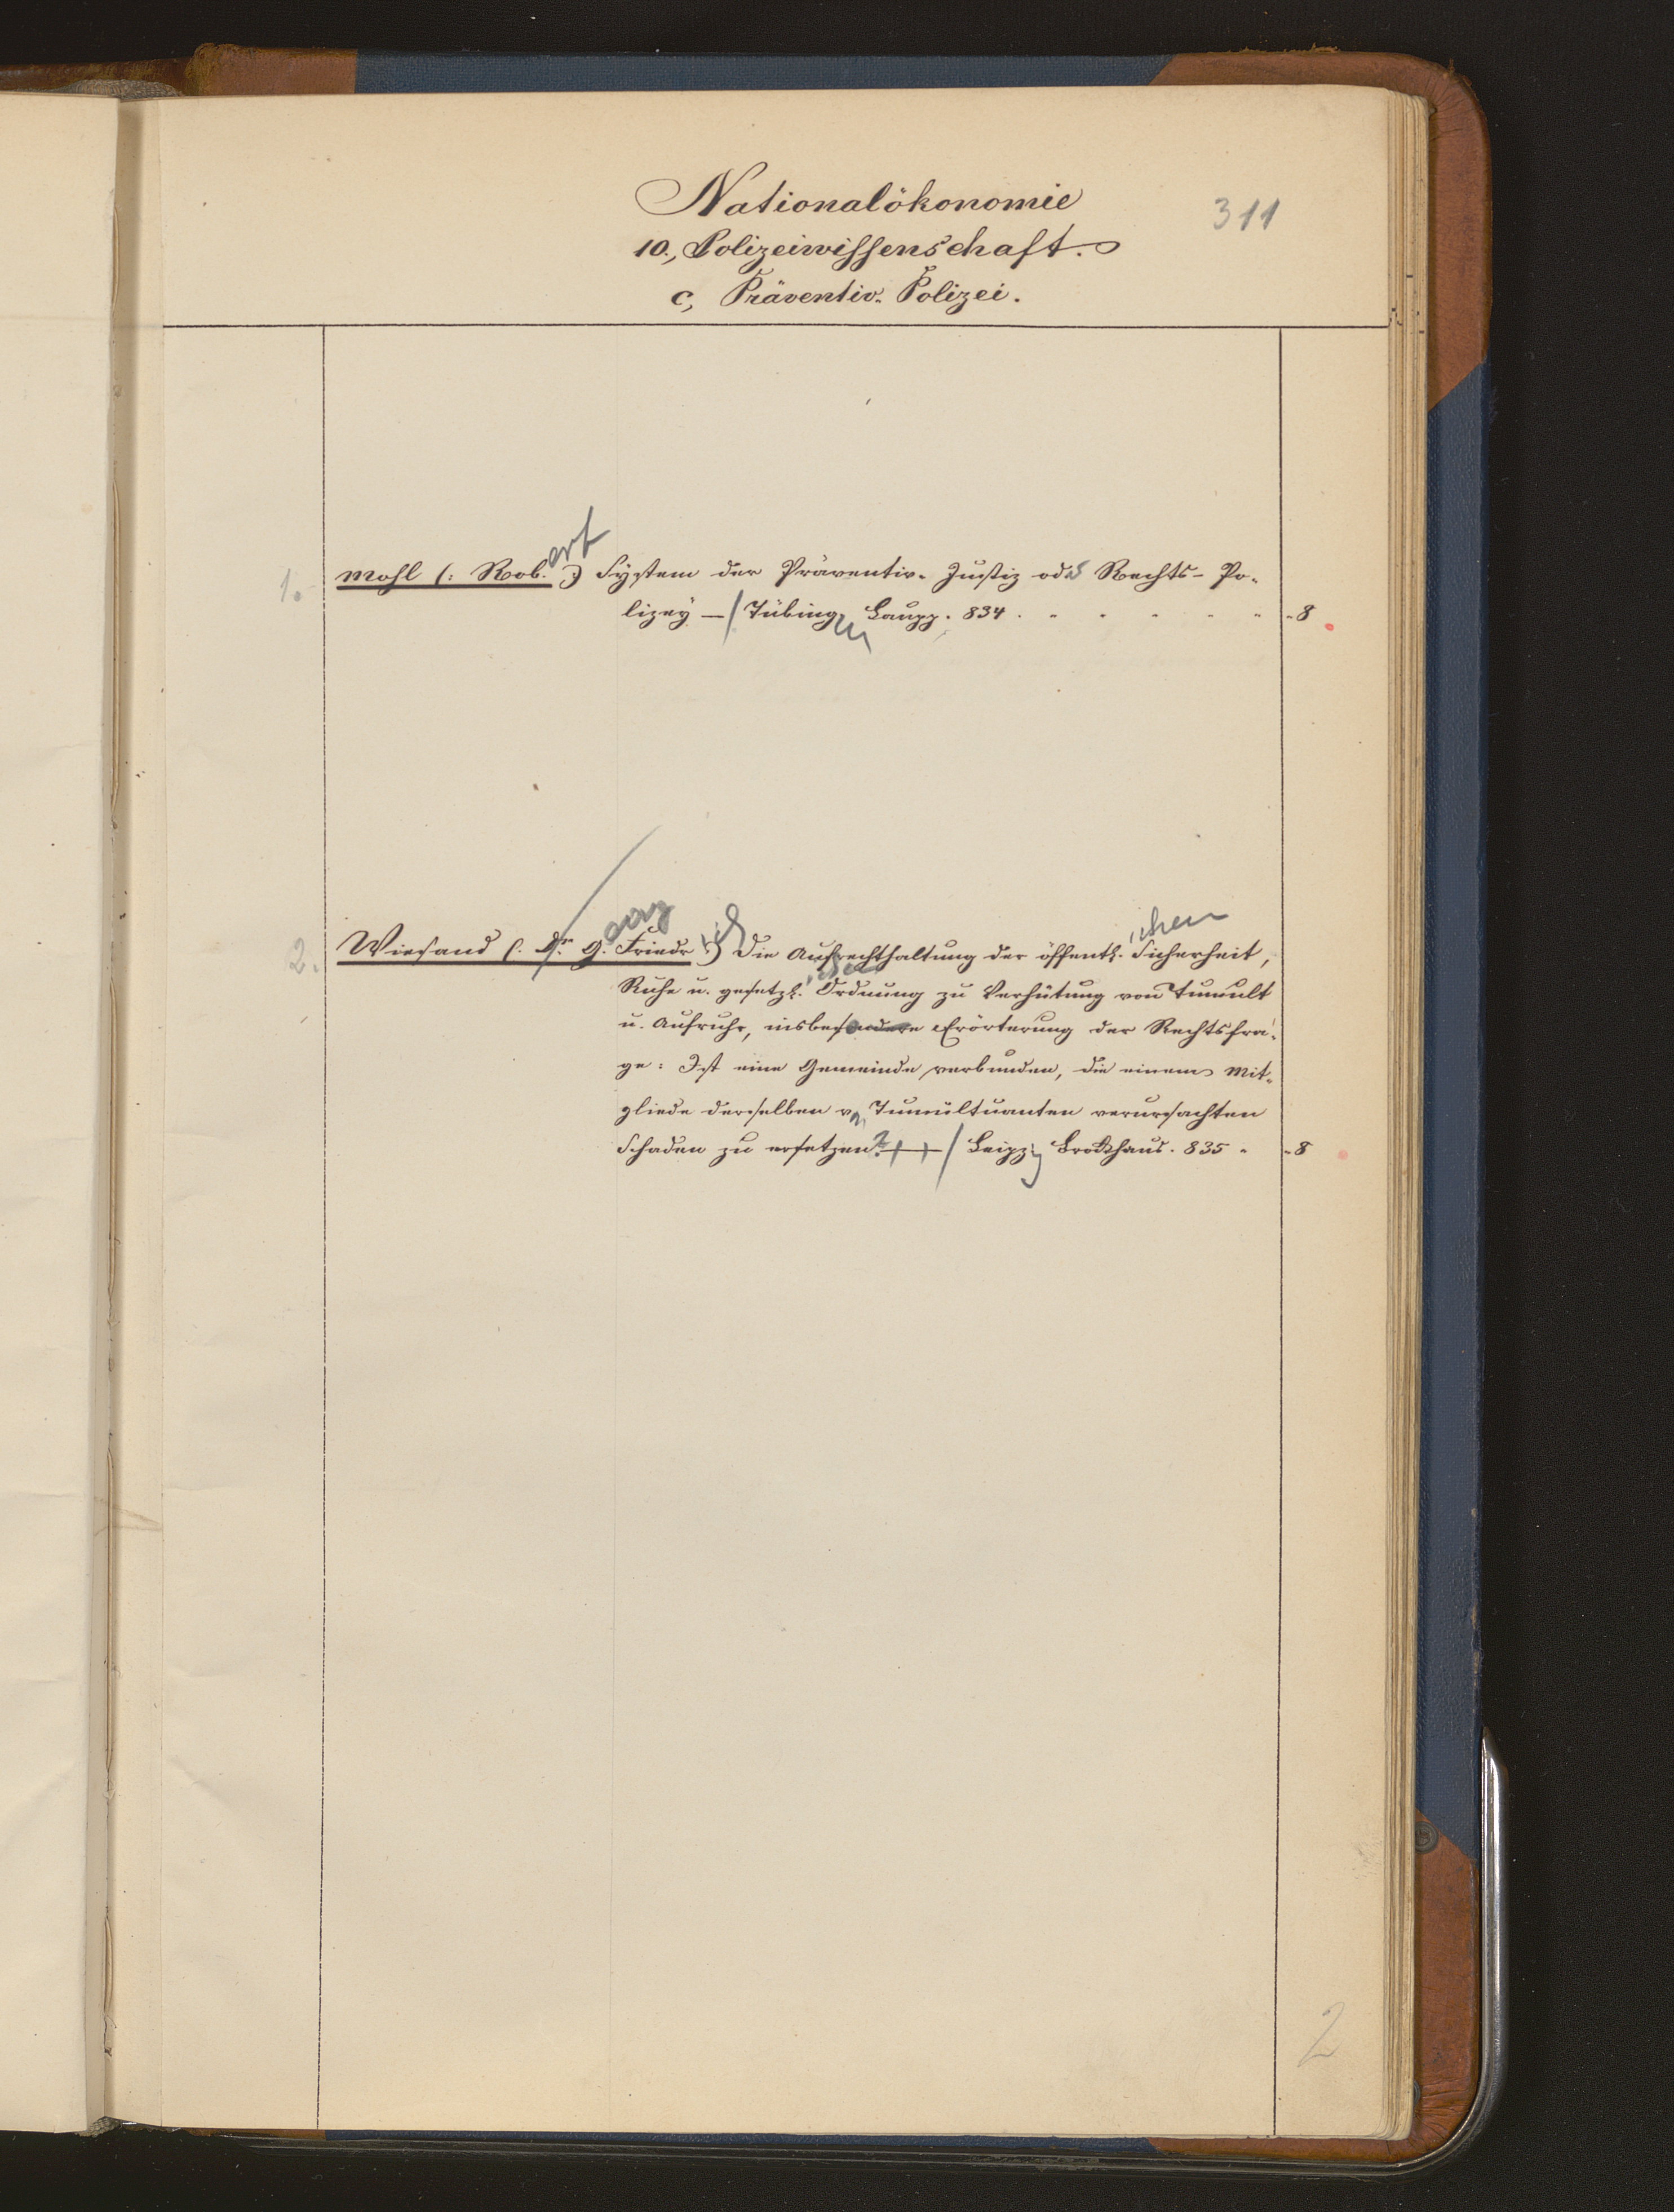 Nationalökonomie
311
10., Polizeiwissenschaft.
c, Präventiv-Polizei.
1. Mohl (: Rob.ert :) System der Präventiv-Justiz oder Rechts-Po-
lizey — / Tübingen Laupp. 834 . - - - - - - 8
2. Wiesand (: Dr. G.eorg Friedrich :) Die Aufrechthaltung der öffentl.ichen Sicherheit,
Ruhe u. gesetzl.ichen Ordnung zu Verhütung von Tumult
u. Aufruhr, insbesondere Erörterung der Rechtsfra-
ge: Ist eine Gemeinde verbunden, die einem Mit-
gliede derselben v. Tumultuanten verursachten
Schaden zu ersetzen? — / Leipzig Brockhaus. 835 - - 8
2